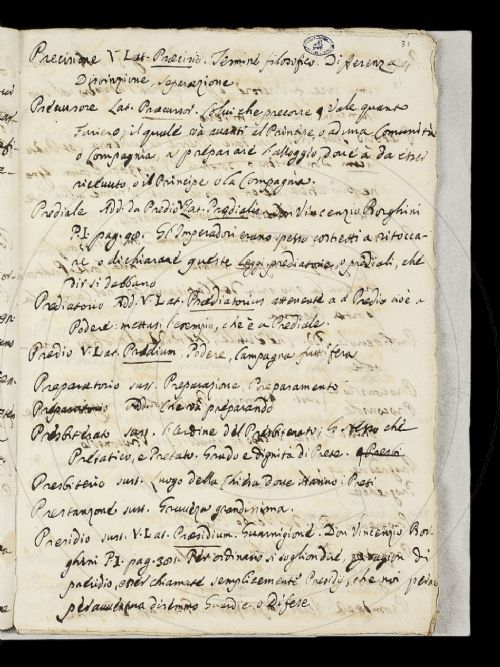 31
Precisione V. Lat. Præcisio. Termine filosofico. Differenza
Distinzione, Separazione.
Precursore Lat. Præcursor. Colui che precorre, Vale quanto
Furiero, il quale và avanti el Principe, o ad una Comunità
o Compagnia, a preparare l'alloggio, dove à da esser
ricevuto, o il Principe o la Compagnia.
Prediale Add. da Predio Lat. Prædialis. Don Vincenzio Borghini
P.I. pag. Gl'Imperadori erano spesso costretti a ritocca-
re, o dichiarare queste Leggi prediatorie, o prediali, che
dir si debbano
Prediatorio Add. V. Lat. Prædiatorius attenente a Predio cioè a
Podere: mettasi l'esempio, che è a Prediale.
Predio V. Lat. Prædium. Podere, Campagna fruttifera
Preparatorio sust. Preparazione, Preparamento
Preparatorio Add. Che và preparando
Presbiterato sust. L'ordine del Presbiterato, Lo stesso che
Pretatico, e Pretato. Grado e dignità di Prete.
Presbiterio sust. Luogo della Chiesa dove stanno i Preti
Prestanzone sust. Gravezza grandissima.
Presidio sust. V. Lat. Præsidium. Guarnigione. Don Vincenzio Bor-
ghini P.I. pag. 301. Per ordinario si sogliono di
preludio, esser chiamate semplicemente Presidj, che noi
per avventura diremmo Guardie, o Difese